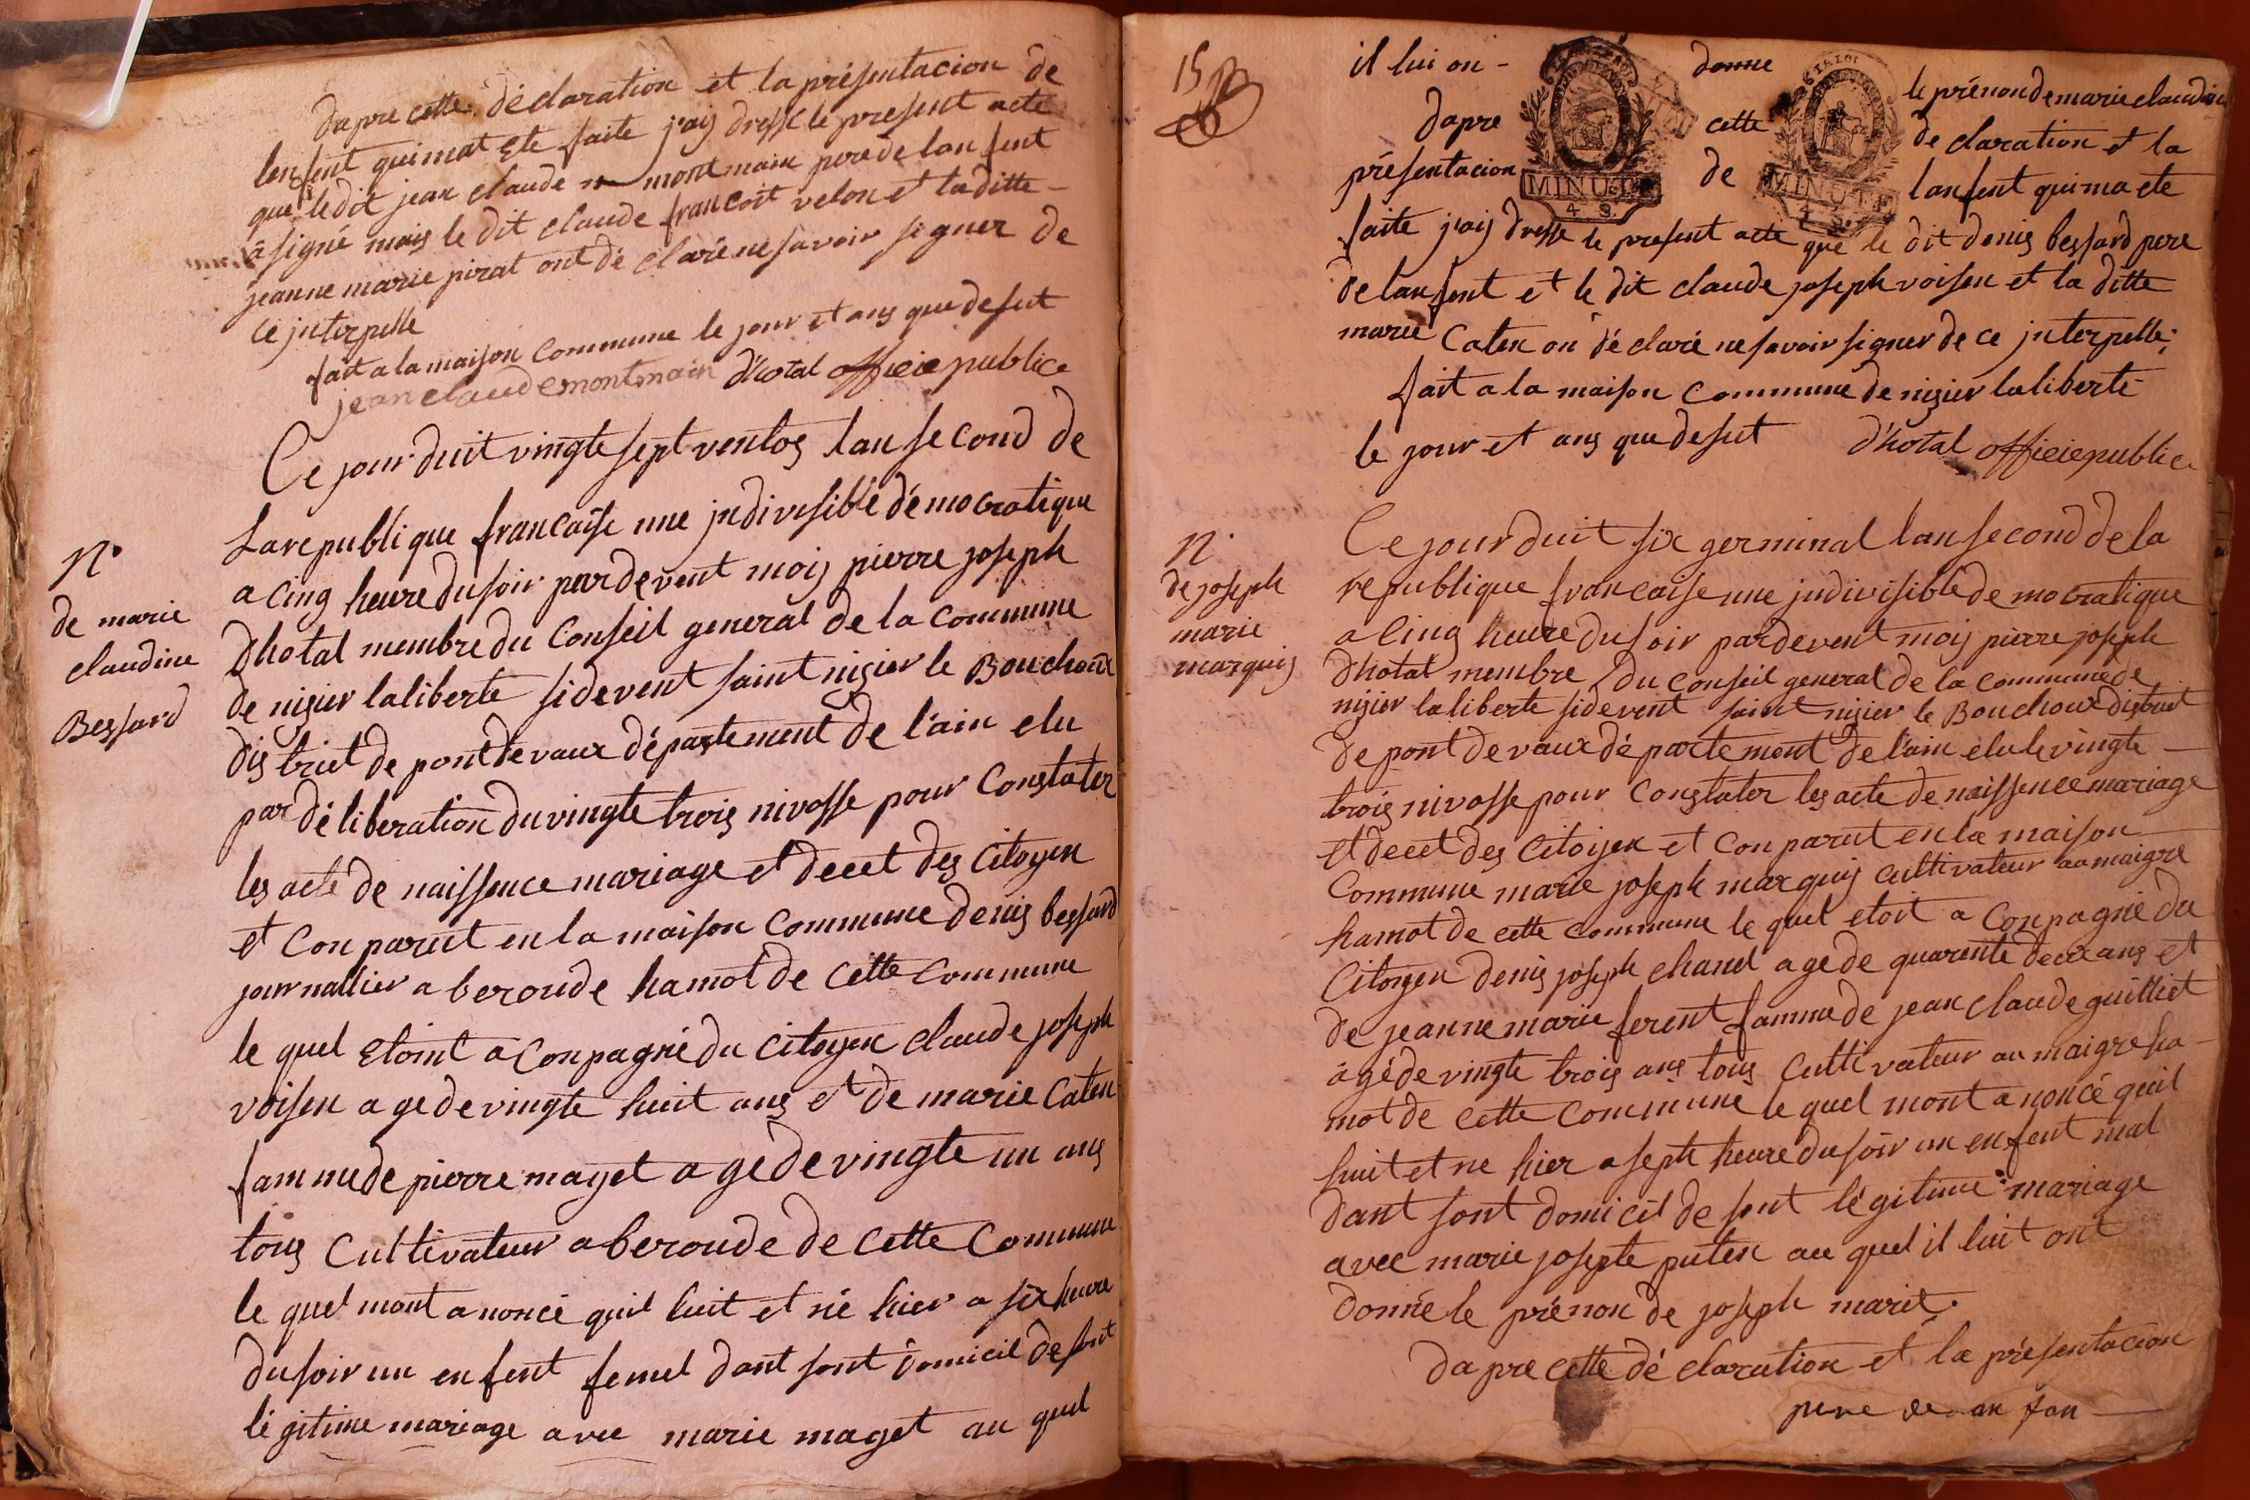 dapre cette déclaration et la présentacion de
lenfent quimat ete faite j'aij dressé le present acte
que ledit jean claude montmain pere de lanfent
à signé mais le dit claude francoit velon et la ditte -
jeanne marie pirat ont dé claré ne savoir signer de
ce jnterpelle
fait a la maison commune le jour et ans que desut
jean claude montmain d'hotal officie publice
N.
de marie
claudine
Bessard
Ce jour duit vingte sept ventos lan second de
La republique francaise une jndivisible démocratique
a cinq heure du soir pardevent moij pierre joseph
Dhotal membre du Conseil general de la commune
de nizier laliberte sidevent saint nizier le Bouchoux
district de pontdevaux département de l'ain elu
par délibération du vingte trois nivosse pour Constater
les acte de naissence mariage et decet des Citoyen
et Conparut en la maison commune denis bessard
journallier a beroude hamot de cette commune
le quel etoint a Conpagnie du Citoyen claude joseph
voisen a ge de vingte huit ans et de marie Caten
famme de pierre mayet a ge de vingte un ans
tous Cultivateur a beroude de cette Commune
le quel mont anoncé quil luit et né hier a six heure
du soir un enfent femel dant sont domicil de sont
légitime mariage avec marie mayet au quel
15
il lui on - donne le prénon de marie claudine
dapre cette déclaration et la
présentacion de lanfent qui ma ete
MINUTE
4. S.
MINUTE
4. S.
faite j'aij dressé le present acte que le dit denis bessard pere
de lanfent et le dit claude joseph voisen et la ditte
marie Caten on déclaré ne savoir signer de ce jnterpelle;
fait a la maison commune de nizier laliberte
le jour et ans que desut d'hotal officie publice
N.
de joseph
marie
marquis
Ce jour duit six germinal lan second de la
republique francaise une jndivisible democratique
a Cinq heure du soir pardevent moij pierre joseph
Dhotal membre du conseil general de la commune de
nizier laliberte sidevent saint nizier le Bouchoux district
de pont de vaux département de l'ain elu le vingte
trois nivosse pour Constater les acte de naissence mariage
et decet des Citoijen et Conparut en la maison
Commune marie joseph marquis cultivateur au maigre
hamot de cette commune le quel etoit a Conpagnie du
Citoyen denis joseph chanel a ge de quarente deux ans et
de jeanne marie ferent famme de jean claude guilliet
àgé de vingte trois ans tous Cultivateur au maigre ha-
mot de cette commune le quel mont anoncé quil
luit et ne hier a septe heure du soir un enfent mal
dant sont domicil de sont légitime mariage
avec marie josepte puten au quel il luit ont
donné le prénon de joseph marit.
dapre cette déclaration et la présentacion
pere de an fan